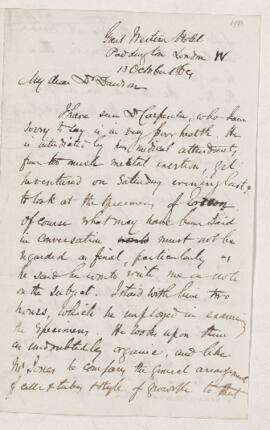 Great Western Hotel
Paddington London W
13 October 1864
My dear Dr Dawson
I have seen Dr Carpenter, who I am
sorry to say is in very poor health. He
is interdicted by his medical attendants,
from too much mental exertion, yet
he ventured on Saturday evening last,
to look at the specimens, of
of course what may have been said
in conversation must not be
regarded as final, particularly as
he said he would write me a note
on the subject. I staid with him two
hours, which he employed in examining
the specimens. He looks upon them
as undoubtedly organic, and like
Mr Jones he compares the general arrangement
of cells & tubes & style of growth to that